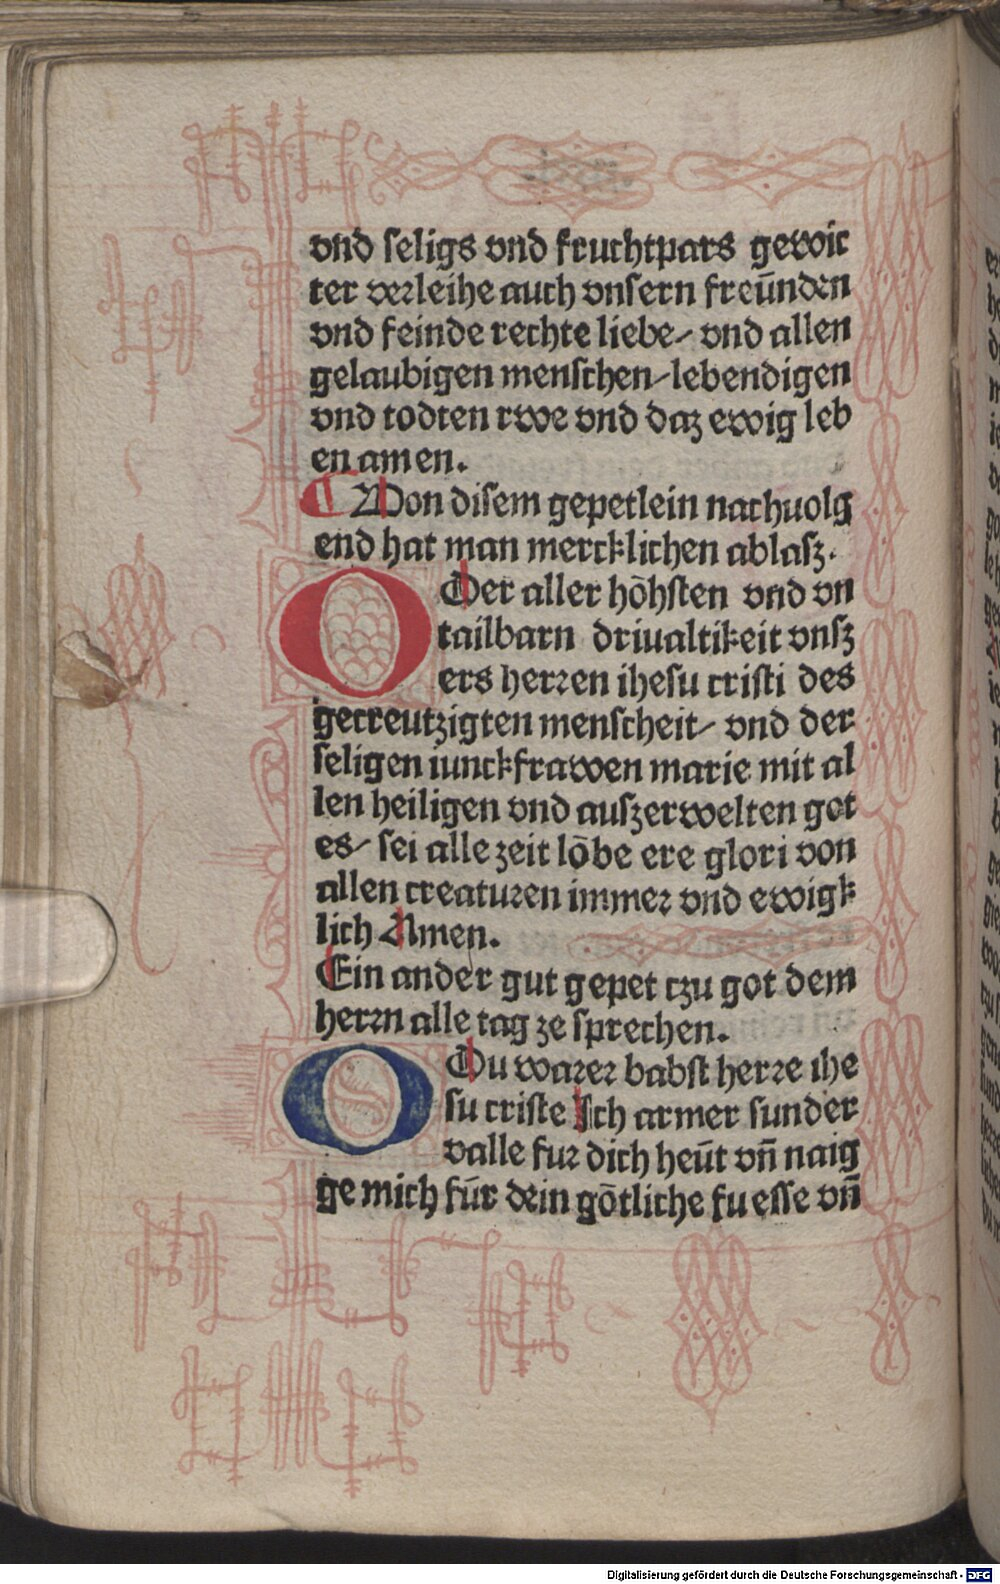 vnd ſeligs vnd fruchtpars gewit
ter verleihe auch vnſern freūnden
vnd feinde rechte liebe⸗ vnd allen
gelaubigen menſchen⸗lebendigen
vnd todten rwe vnd daz ewig leb
en amen.
¶ Von diſem gepetlein nachuolg
end hat man mercklichen ablaſz.
O Der aller hōhſten vnd vn
tailbarn driualtikeit vnſz
ers herꝛen iheſu criſti des
gecreutzigten menſcheit⸗ vnd der
ſeligen iunckfrawen marie mit al
len heiligen vnd auſzerwelten got
es⸗ ſei alle zeit lōbe ere glori von
allen creatuꝛen immeꝛ vnd ewigk
lich Amen.
Ein ander gut gepet czu got dem
herꝛn alle tag ze ſprechen.
O Du waꝛeꝛ babſt herꝛe ihe
ſu criſte Ich armer ſunder
valle fuꝛ dich heūt vn̄ naig
ge mich fūr dein gōtliche fueſſe vn̄
Digitalisierung gefördert durch die Deutsche Forschungsgemeinschaft - DFG